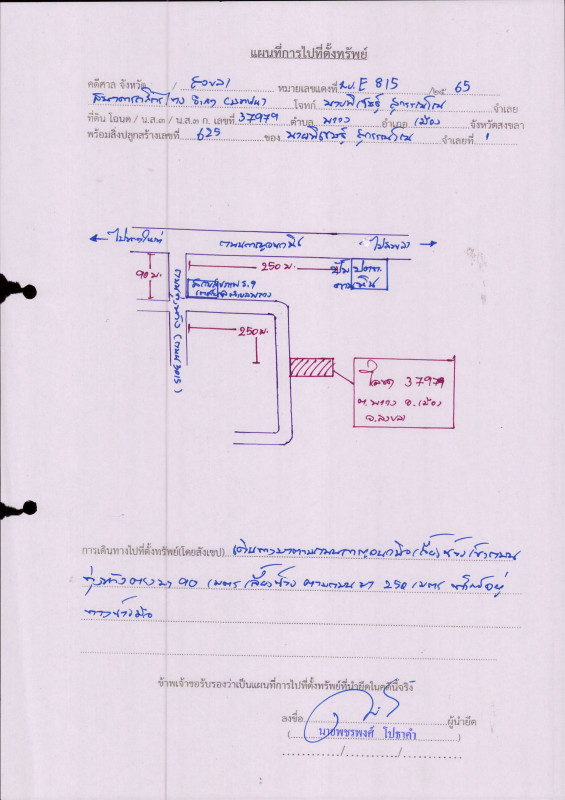 แผนที่การไปที่ตั้งทรัพย์
คดีศาล จังหวัด / สงขลา หมายเลขแดงที่ ผบ.E 815 /๒๕ 65
โจทก์ จำเลย
ที่ดิน โฉนด / น.ส.๓ / น.ส.๓ ก. เลขที่ 37979 ตำบล พะวง อำเภอ เมือง จังหวัดสงขลา
พร้อมสิ่งปลูกสร้างเลขที่ 625 ของ จำเลยที่ 1
ไปหาดใหญ่
ถนนกาญจนวนิช
ไปสงขลา
90 ม.
250 ม.
ปั๊ม ปตท.
250 ม.
โฉนด 37979
ต.พะวง อ.เมือง
จ.สงขลา
การเดินทางไปที่ตั้งทรัพย์(โดยสังเขป) เดินทางมาตามถนนกาญจนวนิช เลี้ยวซ้ายเข้าถนน
ทุ่งหวังตรงมา 90 เมตร เลี้ยวซ้าย ตามถนนมา 250 เมตร ทรัพย์อยู่
ทางซ้ายมือ
ข้าพเจ้าขอรับรองว่าเป็นแผนที่การไปที่ตั้งทรัพย์ที่นำยึดในคดีนี้จริง
ลงชื่อ ผู้นำยึด
( นายพชรพงศ์ โปธาคำ )
/ /